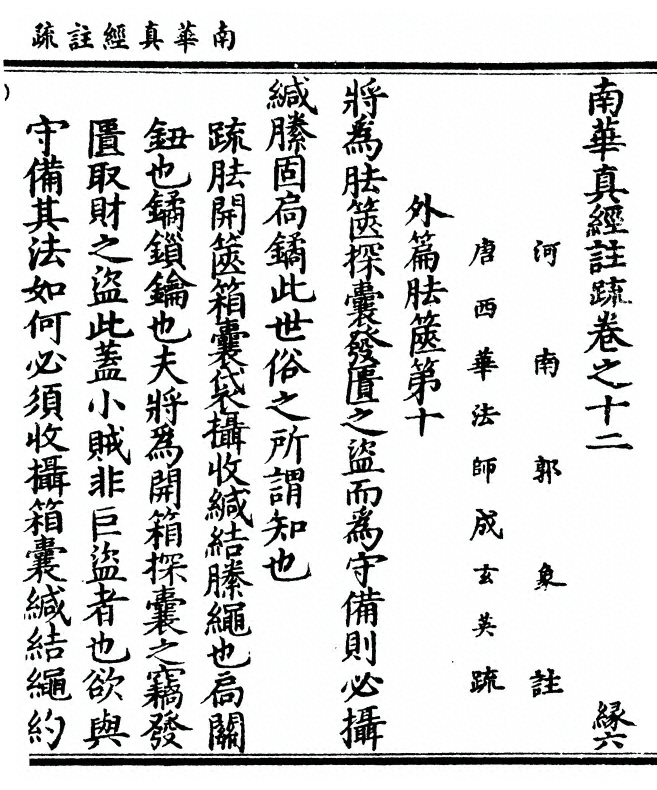 南華真經註疏
南華真經註疏卷之十二 緣六
河南郭象註
唐西華法師成玄英疏
外篇胠篋第十
將為胠篋探囊發匱之盜而為守備則必攝
緘縢固扃鐍此世俗之所謂知也
疏胠開篋箱囊袋攝收緘結縢繩也扃關
鈕也鐍鎖鑰也夫將為開箱探囊之竊發
匱取財之盜此蓋小賊非巨盜者也欲與
守備其法如何必須收攝箱囊緘結繩約